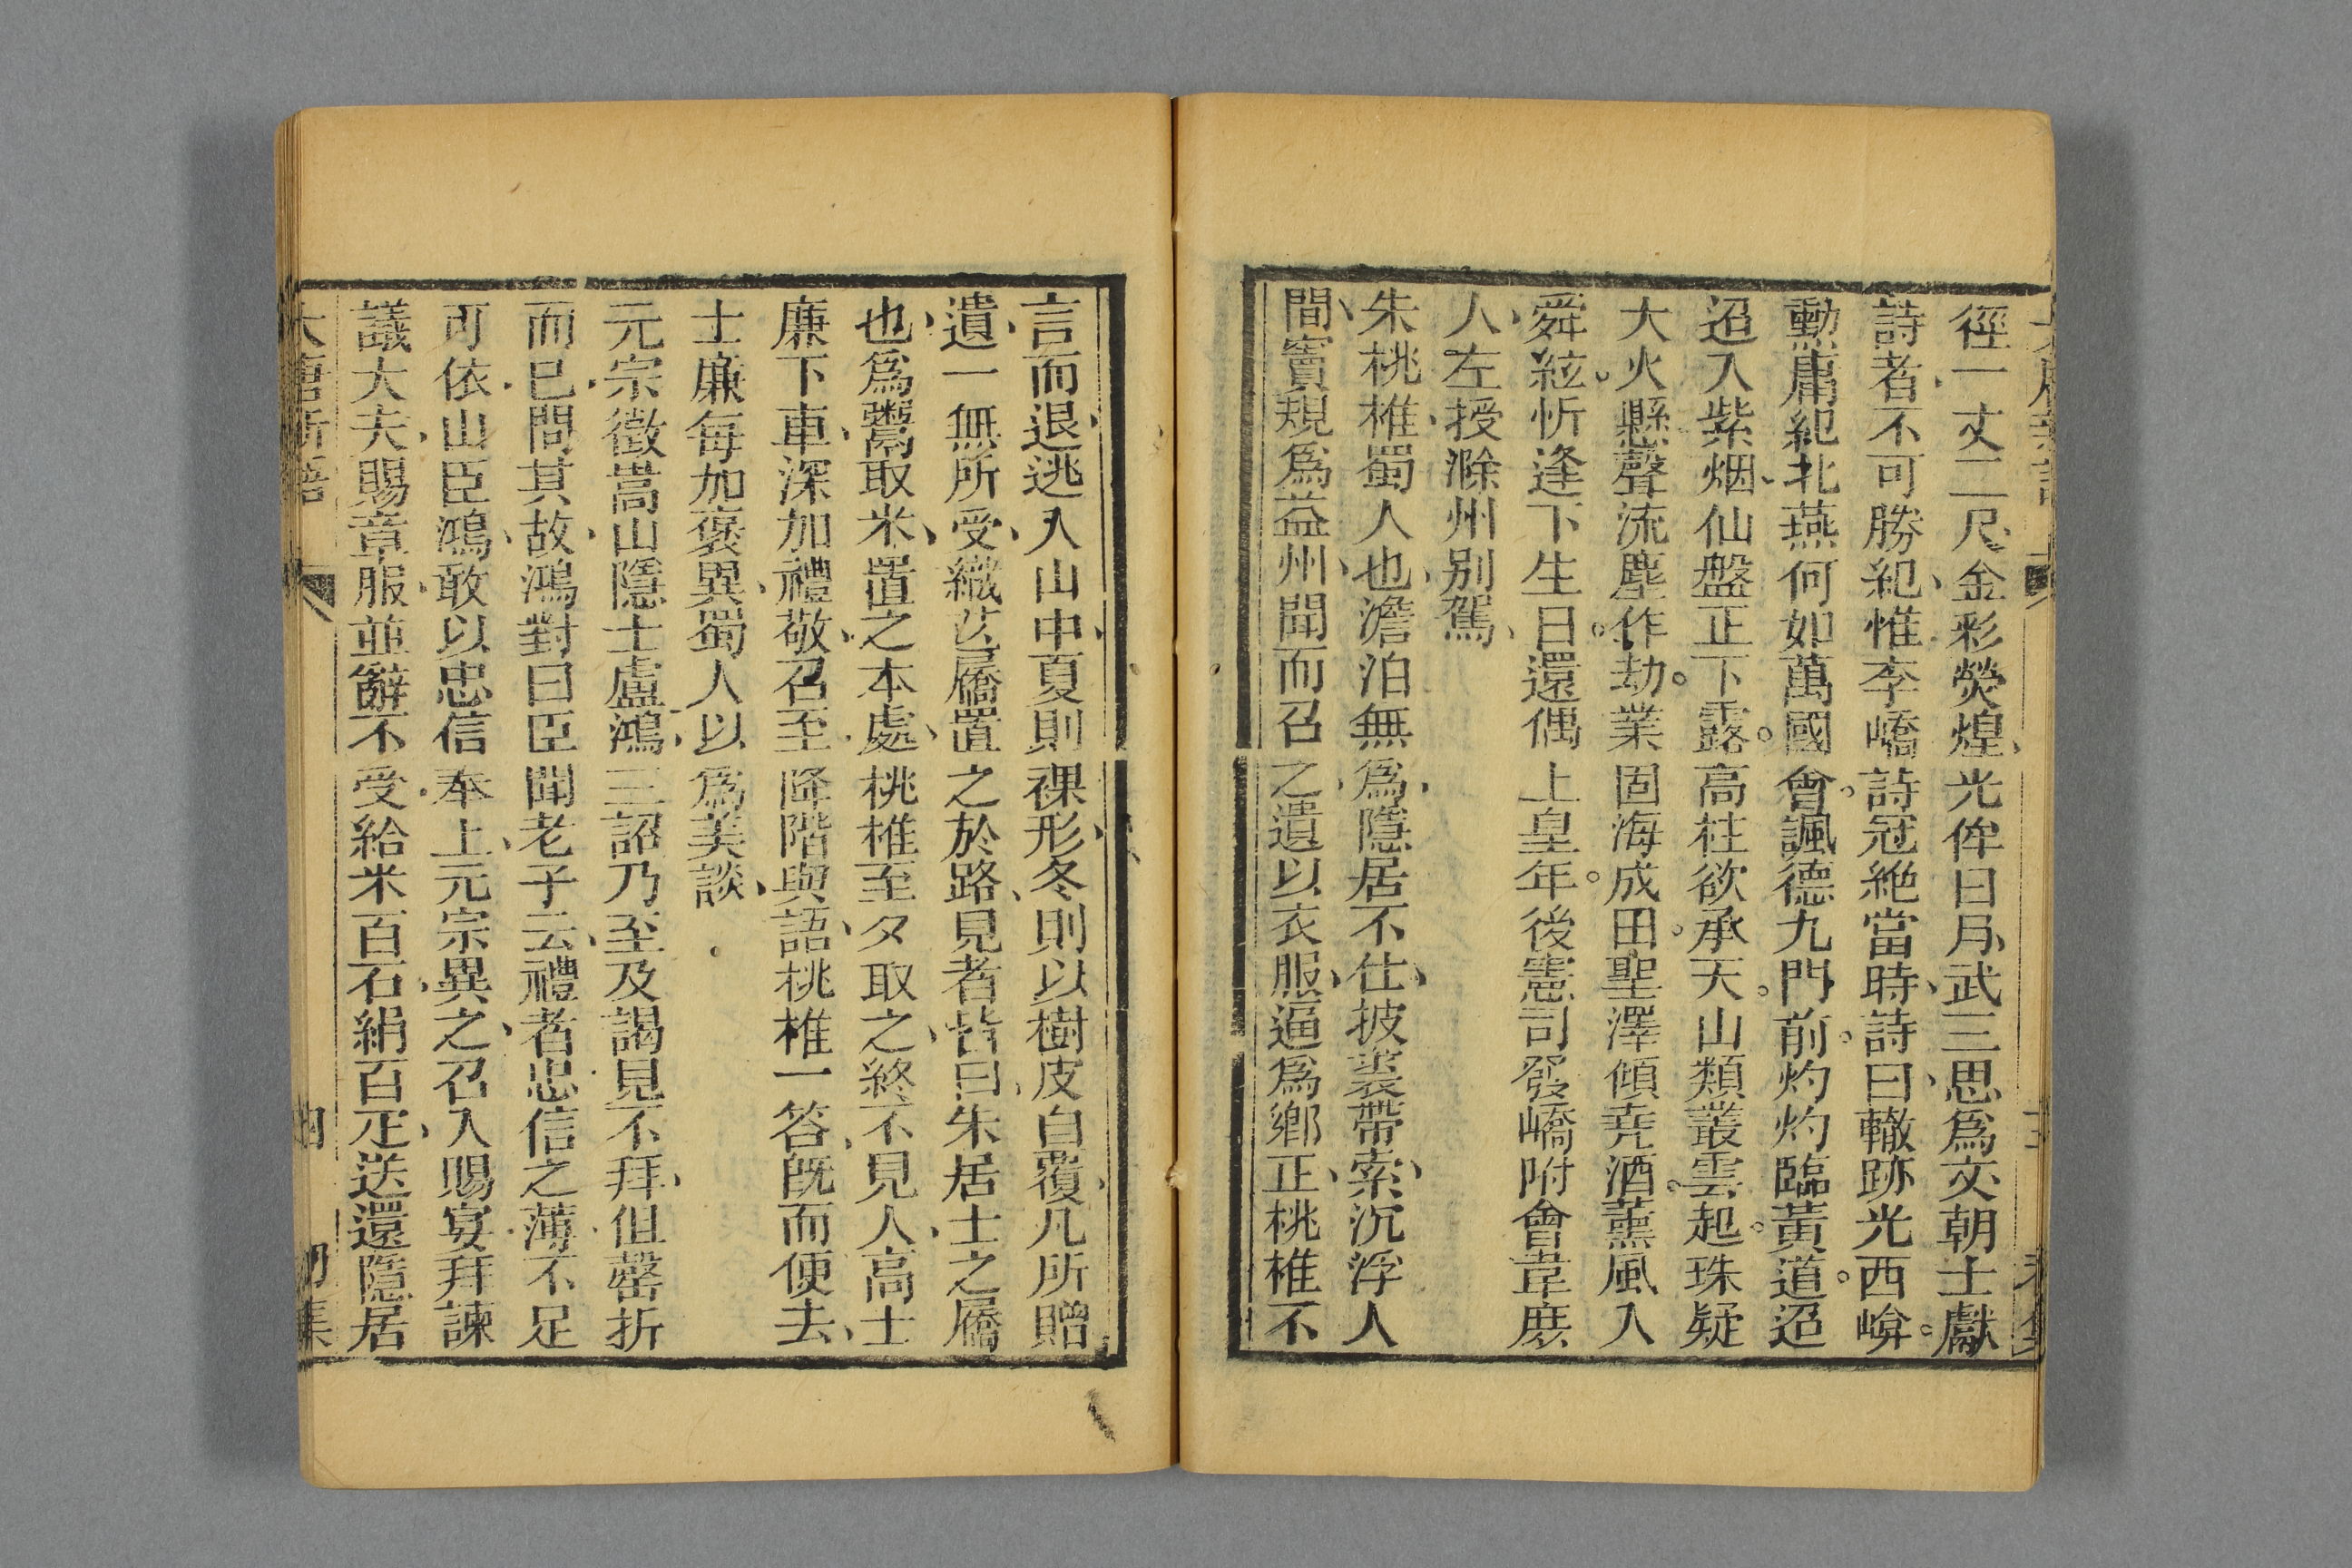 徑一丈二尺金彩熒煌光侔日月武三思爲文朝士獻
詩者不可勝紀惟李嶠詩冠絶當時詩曰轍跡光西崦
勳庸紀北燕何如萬國會諷德九門前灼灼臨黃道迢
迢入紫烟仙盤正下露高柱欲承天山類叢雲起珠疑
大火懸聲流塵作劫業固海成田聖澤傾堯酒薰風入
舜絃忻逢下生日還偶上皇年後憲司發嶠附會韋庶
人左授滁州別駕
朱桃椎蜀人也澹泊無爲隱居不仕披裘帶索沉浮人
間竇規爲益州聞而召之遺以衣服逼爲鄉正桃椎不
言而退逃入山中夏則裸形冬則以樹皮自覆凡所贈
遺一無所受織芒屩置之於路見者皆曰朱居士之屩
也爲鬻取米置之本處桃椎至夕取之終不見人高士
廉下車深加禮敬召至降階與語桃椎一答旣而便去
士廉每加褒異蜀人以爲美談
元宗徵嵩山隱士盧鴻三詔乃至及謁見不拜但罄折
而已問其故鴻對曰臣聞老子云禮者忠信之薄不足
可依山臣鴻敢以忠信奉上元宗異之召入賜宴拜諫
議大夫賜章服並辭不受給米百石絹百疋送還隱居
大唐新語